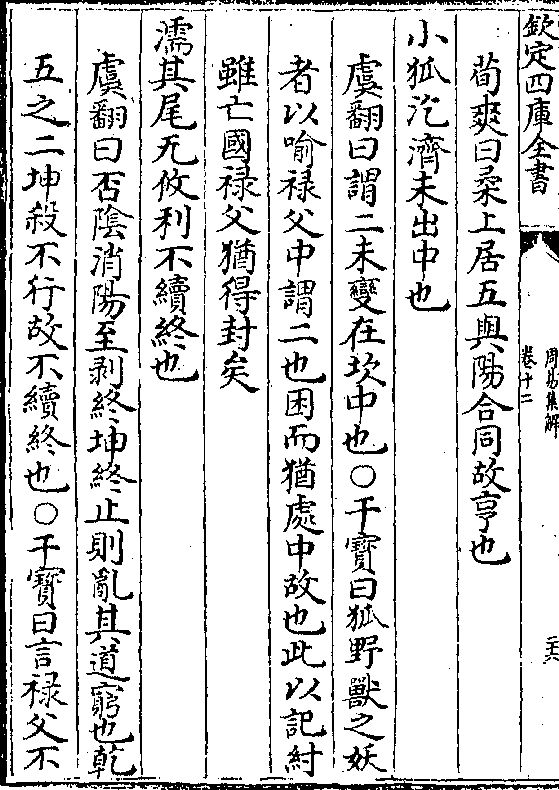 欽定四庫全書
周易集解
卷十二
二六
荀爽曰柔上居五與陽合同故亨也
小狐汔濟未出中也
虞翻曰謂二未變在坎中也○干寶曰狐野獸之妖
者以喻禄父中謂二也困而猶處中故也此以記紂
雖亡國禄父猶得封矣
濡其尾无攸利不續終也
虞翻曰否陰消陽至剥終坤終止則亂其道窮也乾
五之二坤殺不行故不續終也○干寶曰言禄父不